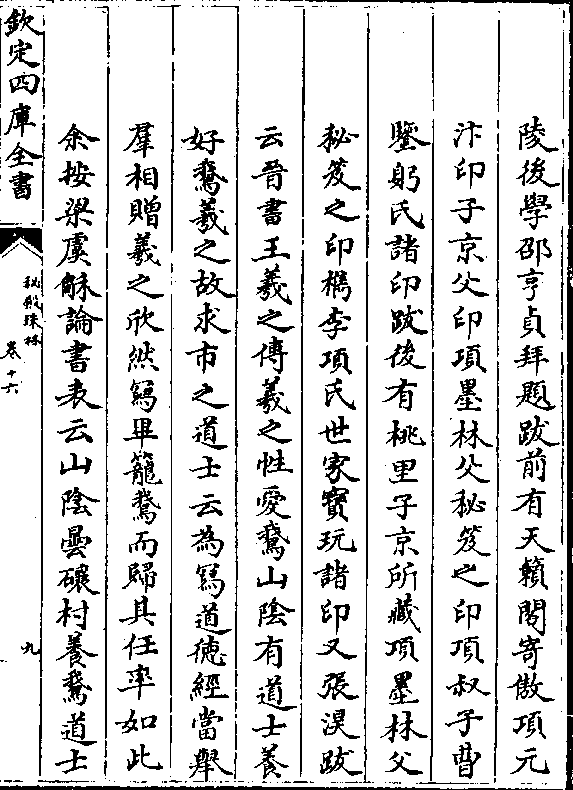 陵後學邵亨貞拜題跋前有天籟閣寄傲項元
汴印子京父印項墨林父秘笈之印項叔子曹
鑒躬氏諸印跋後有桃里子京所藏項墨林父
秘笈之印檇李項氏世家寶玩諸印又張淏跋
云晉書王羲之傳羲之性愛鵞山陰有道士養
好鵞羲之故求市之道士云為寫道徳經當舉
羣相贈羲之欣然寫畢籠鵞而歸其任率如此
余按梁虞龢論書表云山陰曇𥖎村養鵞道士
欽定四庫全書
秘殿珠林
卷十六
九